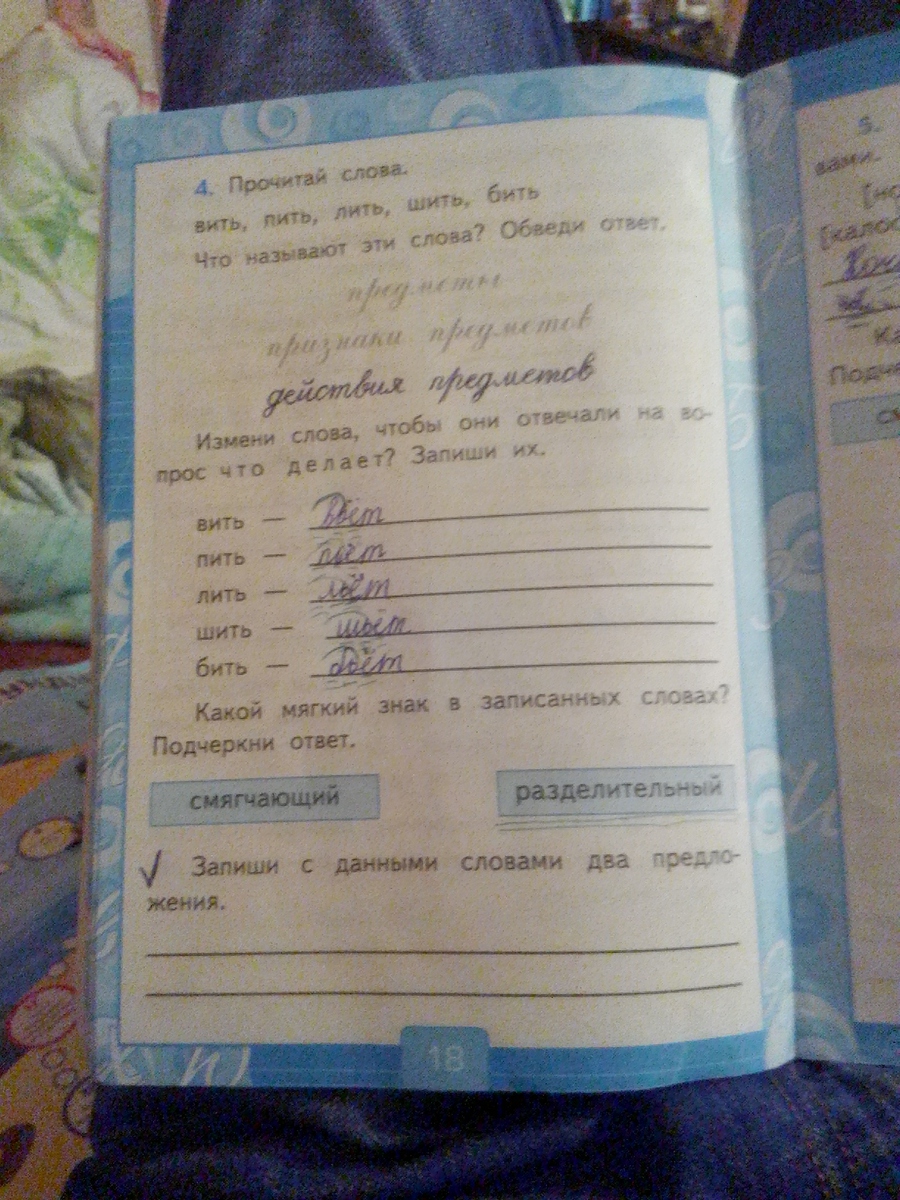 4. Прочитай слова.
вить, пить, лить, шить, бить
Что называют эти слова? Обведи ответ.
предметы
признаки предметов
действия предметов
Измени слова, чтобы они отвечали на во-
прос что делает? Запиши их.
вить — вьёт
пить — пьёт
лить — льёт
шить — шьёт
бить — бьёт
Какой мягкий знак в записанных словах?
Подчеркни ответ.
смягчающий разделительный
√ Запиши с данными словами два предло-
жения.
18
5.
вами.
[но
[калос
Ка
Подче